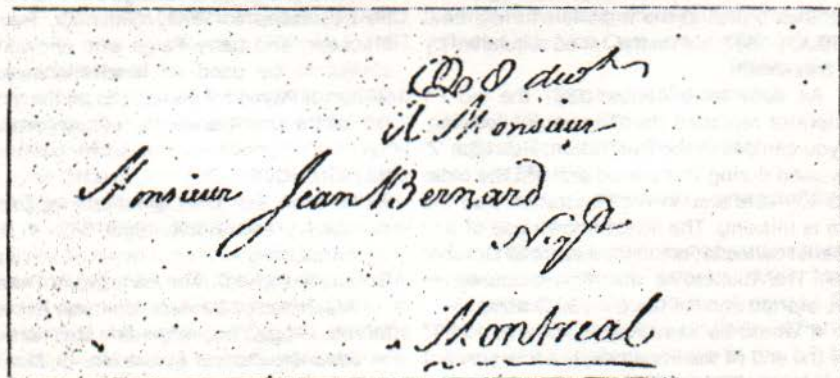 A Monsieur
Monsieur Jean Bernard
N.g.t
Montreal